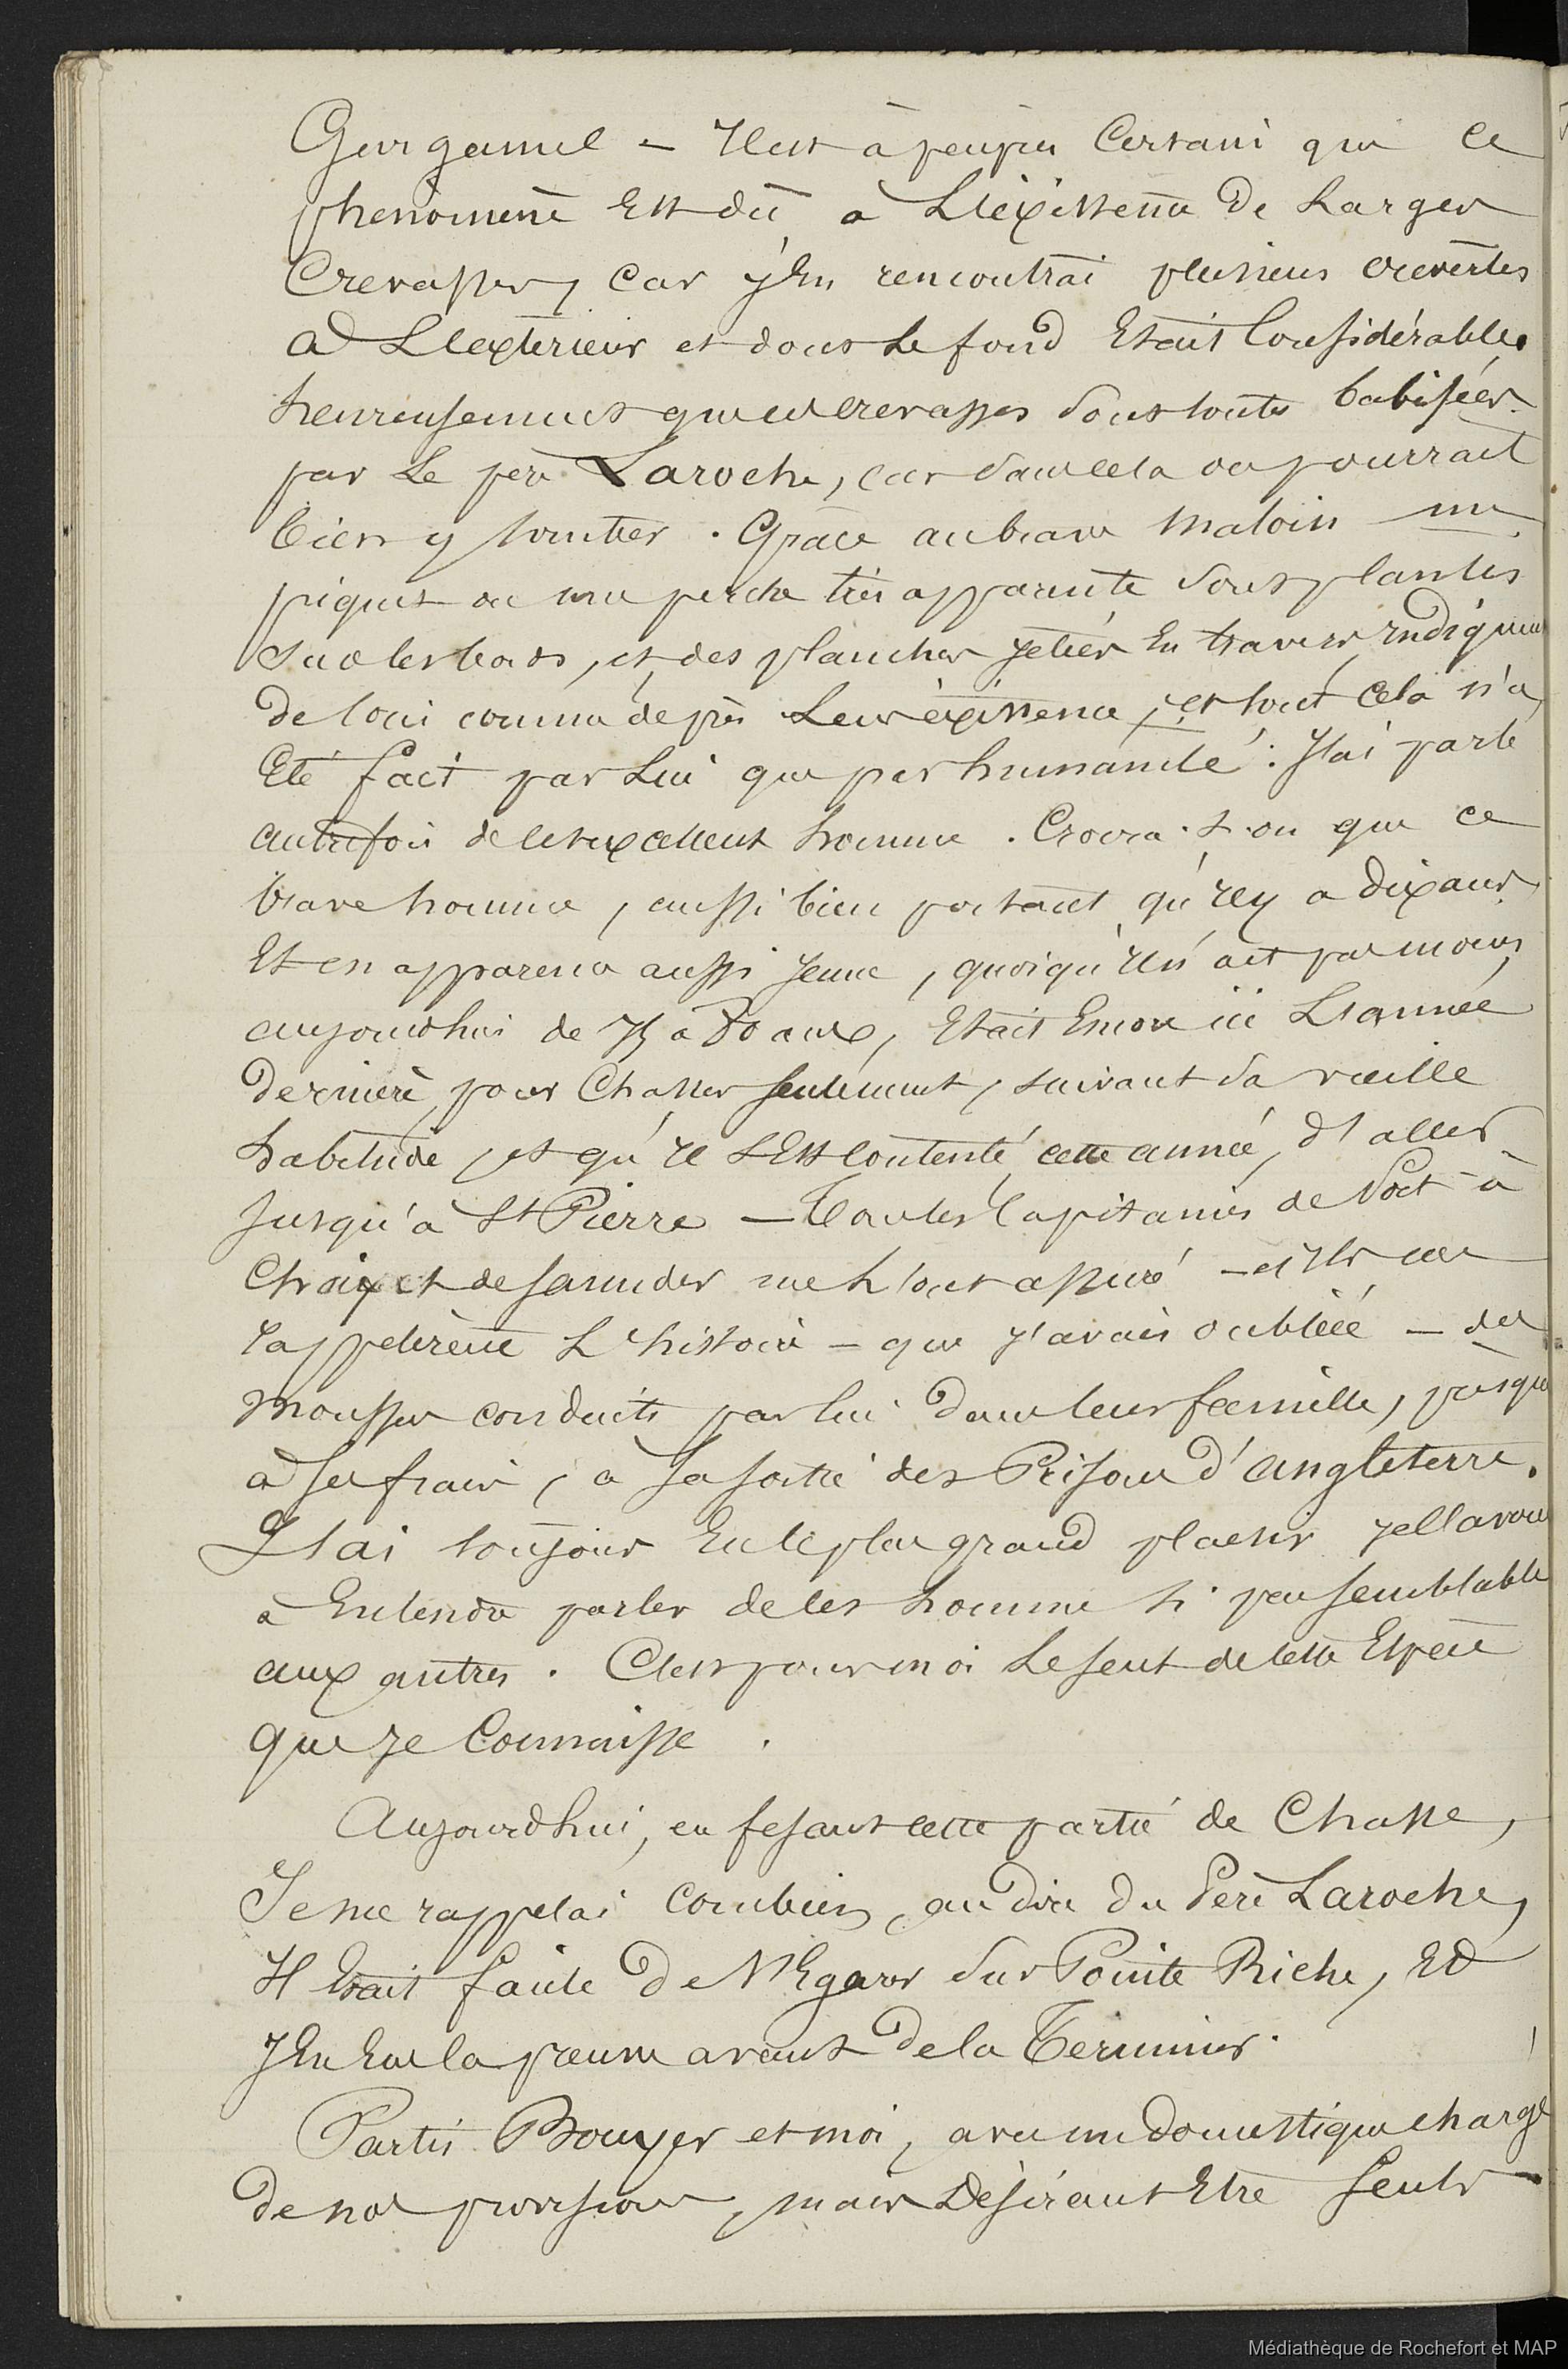 Gargamel – Il est à peuprès Certain que ce
phénomène Est dû à L'éxistence de Larges
Crevasses, car j'En rencontrai plusieurs ouvertes
a L'extérieur et dont Le fond Etait Considérable.
heureusement que ces crevasses sont toutes balisées
par Le père Laroche, car sans cela on pourrait
bien y tomber. Grâce au brave Maloin un
piquet ou une perche très apparente sont plantés
sur les bords, et des planches jetées En travers, Indiquent
de loin comme de près Leur éxistence, et tout cela n'a
Eté fait par Lui que par humanité. J'ai parlé
autrefois de cet excellent homme. Croira-t-on que ce
brave homme, aussi bien portant qu'il y a dix ans
Et en apparence aussi jeune, quoiqu'Il n'ait pas moins
aujourdhui de 75 à 80 ans, Etait Encore ici L'année
dernière, pour Chasser seulement, suivant sa vieille
habitude, et qu'Il s'Est contenté, cette année, d'aller
jusqu'à St Pierre – Tous les Capitaines de Port à
Choix et de Saunders me L'ont assuré – et Ils me
rappelèrent L'histoire – que j'avais oubliée – des
Mousses conduits par lui dans leur famille, presque
à ses frais, à sa sortie des Prisons d'angleterre.
J'ai toujours Eu le plus grand plaisir je l'avoue
à Entendre parler de cet homme si peu semblable
aux autres. C'est pour moi Le seul de cette Espèce
que je Connaisse.
Aujourdhui, en fesant cette partie de Chasse,
Je me rappelai combien, au dire du Père Laroche,
Il Etait facile de s'Egarer sur Pointe Riche, Et
J'En Eus la preuve avant de la Terminer.
Partis Bouyer et moi, avec un domestique chargé
de nos provisions, mais Désirant Etre seuls